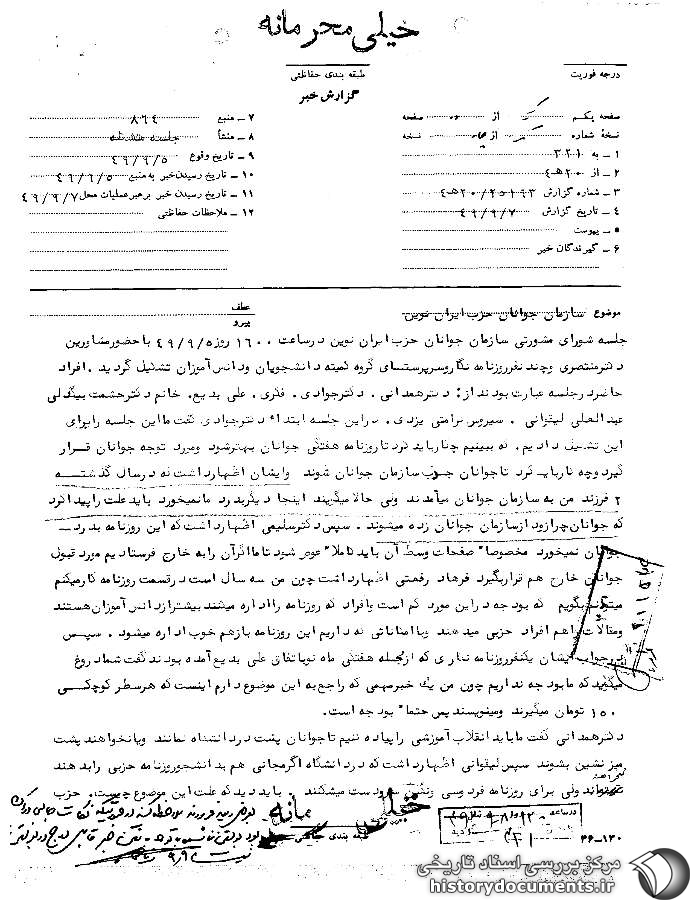 خیلی محرمانه
درجه فوریت
طبقه بندی حفاظتی
گزارش خبر
صفحه یکم از صفحه
نسخه شماره از نسخه
۱ ـ به ۳۲۱
۲ ـ از ۲۰ هـ ۴
۳ ـ شماره گزارش ۲۰/۲۵۱۹۳ هـ ۴
۴ ـ تاریخ گزارش ۴۹/۹/۷
۵ ـ پیوست
۶ ـ گیرندگان خبر
۷ ـ منبع ۸۶۴
۸ ـ منشأ جلسه متشکله
۹ ـ تاریخ وقوع ۴۹/۹/۵
۱۰ ـ تاریخ رسیدن خبر به منبع ۴۹/۹/۵
۱۱ ـ تاریخ رسیدن خبر برهبر عملیات محل ۴۹/۹/۷
۱۲ ـ ملاحظات حفاظتی
موضوع سازمان جوانان حزب ایران نوین
عطف
پیرو
جلسه شورای مشورتی سازمان جوانان حزب ایران نوین در ساعت ۱۶۰۰ روز ۴۹/۹/۵ با حضور مشاورین
دکتر منتصری و چند نفر روزنامه نگار و سرپرستهای گروه کمیته دانشجویان و دانش آموزان تشکیل گردید . افراد
حاضر در جلسه عبارت بودند از : دکتر همدانی . دکتر جوادی . فکری . علی بدیع . خانم دکتر حشمت بیگدلی
عبدالعلی لیقوانی . سیروس برامتی یزدی . در این جلسه ابتداء دکتر جوادی گفت ما این جلسه را برای
این تشکیل دادیم . که ببینیم چکار باید کرد تا روزنامه هفتگی جوانان بهتر شود و مورد توجه جوانان قرار
گیرد و چه کار باید کرد تا جوانان جذب سازمان جوانان شوند و ایشان اظهار داشت که در سال گذشته
۲ فرزند من به سازمان جوانان میآمدند ولی حالا میگویند اینجا دیگر بدرد ما نمیخورد باید علت را پیدا کرد
که جوانان چرا زود از سازمان جوانان زده میشوند . سپس دکتر سلیمی اظهار داشت که این روزنامه بدرد
جوانان نمیخورد مخصوصا" صفحات وسط آن باید کاملا" عوض شود تا ما اگر آن را به خارج فرستادیم مورد قبول
جوانان خارج هم قرار بگیرد فرهاد رفعتی اظهار داشت چون من سه سال است در قسمت روزنامه کار میکنم
میتوانم بگویم که بودجه در این مورد کم است و افراد که روزنامه را اداره میکنند بیشتر از دانش آموزان هستند
و مقالات را هم افراد حزبی میدهند و با امکاناتی که داریم این روزنامه باز هم خوب اداره میشود . سپس
در جواب ایشان یکنفر روزنامه نگاری که از مجله هفتگی ماه نو باتفاق علی بدیع آمده بودند گفت شما دروغ
میگوئید که ما بودجه نداریم چون من یک خبر مهمی که راجع به این موضوع دارم اینست که هر سطر کوچکی
۱۵۰ تومان میگیرند و مینویسند پس حتما" بودجه است.
دکتر همدانی گفت ما باید انقلاب آموزشی را پیاده کنیم تا جوانان پشت در دانشگاه نمانند و یا نخواهند پشت
میز نشین بشوند سپس لیقوانی اظهار داشت که در دانشگاه اگر مجانی هم به دانشجو روزنامه حزبی را بدهند
ولی برای روزنامه فردوسی و نگین سرودست میشکنند . باید دید که علت این موضوع چیست . حزب
خیلی محرمانه
طبقه بندی حفاظتی
۳۶-۱۳۰
مرکز بررسی اسناد تاریخی
historydocuments.ir